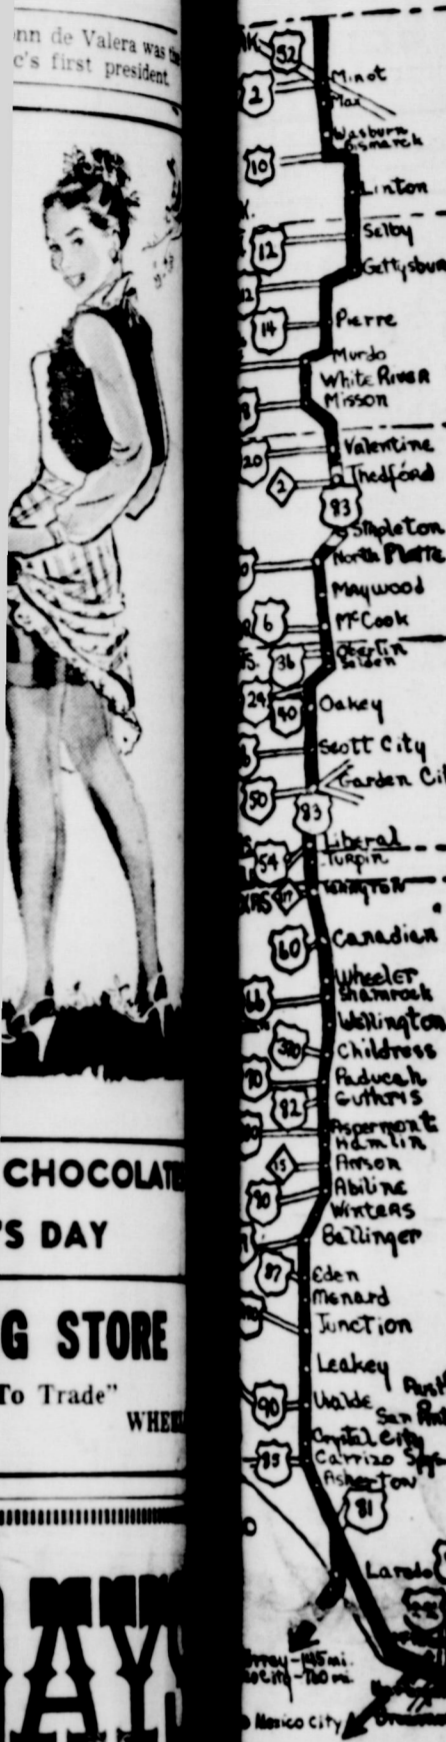 nn de Valera was the
c's first president.
CHOCOLATE
'S DAY
G STORE
To Trade"
WHEE
AYS
52
Minot
2
Max
Wasburn
Bismarck
10
Linton
Selby
12
Gettysbur
14
Pierre
Murdo
White River
Misson
Valentine
20
Thedford
2
83
Stapleton
North Platte
Maywood
6
McCook
Oberlin
36
Selden
24
40
Oakey
Scott City
Garden Ci
50
83
Liberal
54
Turpin
60
Canadian
Wheeler
Shamrock
66
Wellington
Childress
Paducah
82
Guthris
Aspermont
Hamlin
15
Anson
Abiline
Winters
Ballinger
87
Eden
Menard
Junction
Leakey
90
Uvalde
Crystal City
85
Carrizo Spgs
Asherton
81
Laredo
rrey-145 mi.
Mexico City